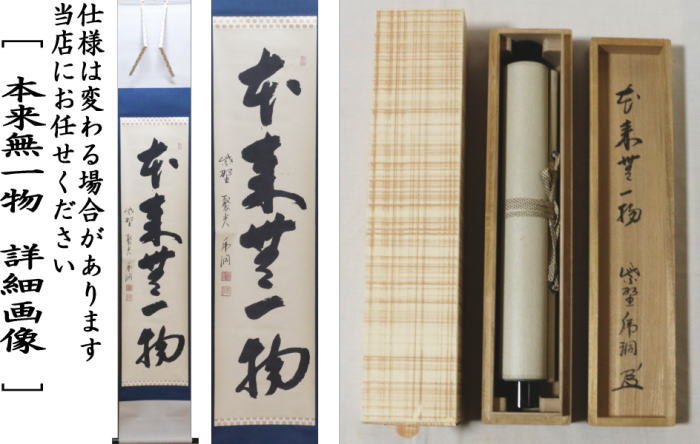 仕様は変わる場合があります
当店にお任せください
[ 本来無一物 詳細画像 ]
本来無一物
紫野 聚光 虎洞
本来無一物
紫野 聚光 虎洞
本来無一物 紫野虎洞